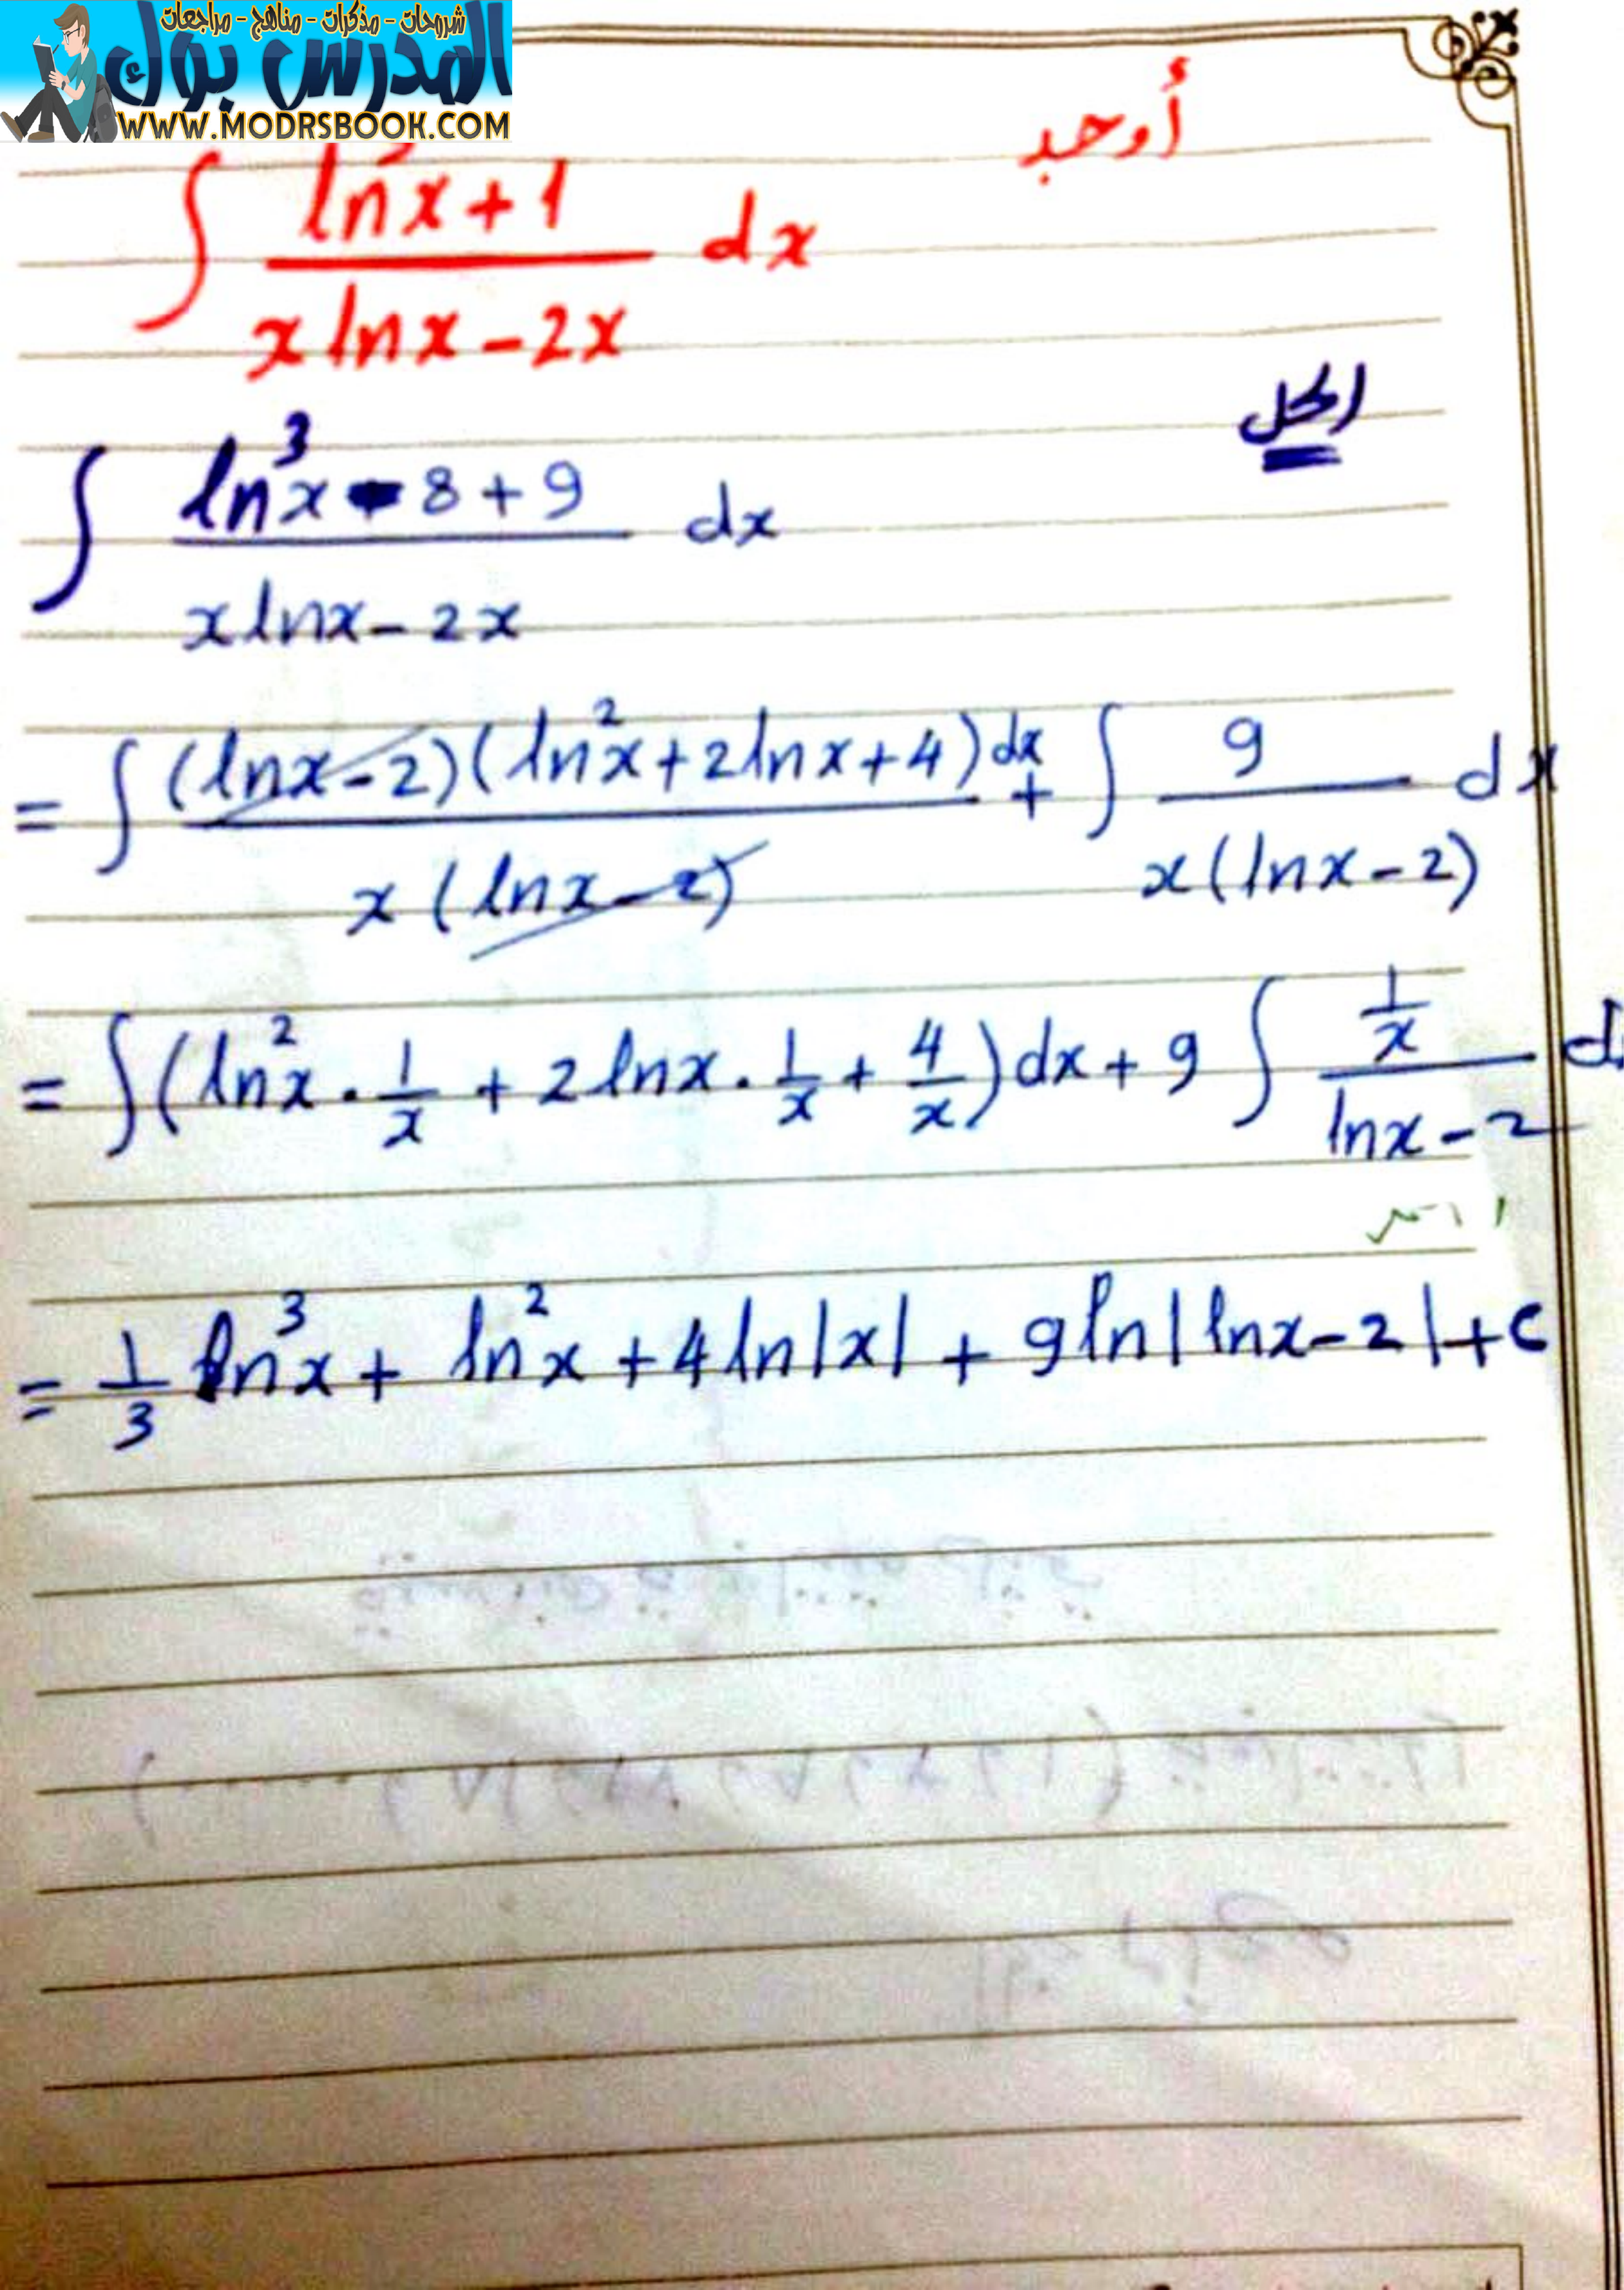 شروحات - مذكرات - مناهج - مراجعات
المدرس بوك
WWW.MODRSBOOK.COM
أوجد
∫ (ln³x + 1)/(x lnx - 2x) dx
الحل
∫ (ln³x - 8 + 9)/(x lnx - 2x) dx
= ∫ (lnx - 2)(ln²x + 2lnx + 4)dx/(x(lnx - 2)) + ∫ 9/(x(lnx - 2)) dx
= ∫(ln²x · 1/x + 2lnx · 1/x + 4/x)dx + 9 ∫ (1/x)/(lnx - 2) d
= 1/3 ln³x + ln²x + 4ln|x| + 9ln|lnx - 2| + c